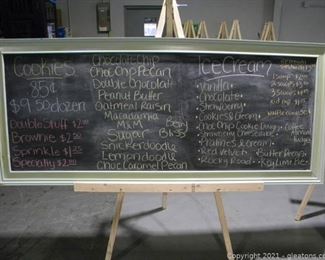 Cookies
85¢
$9.50 dozen
Double Stuff $2.00
Brownie $2.00
Sprinkle $1.35
Specialty $2.00
Chocolate Chip
Choc Chip Pecan
Double Chocolate
Peanut Butter
Oatmeal Raisin
Macadamia
M&M
Sugar
Snickerdoodle
Lemondoodle
Choc Caramel Pecan
Ice Cream
Vanilla
Chocolate
Strawberry
Cookies & Cream
Choc Chip Cookie Dough
Strawberry Cheesecake
Pralines & Cream
Red Velvet
Rocky Road
Coffee
Butter Pecan
Key Lime Pie
Copyright 2021 - gleatons.com